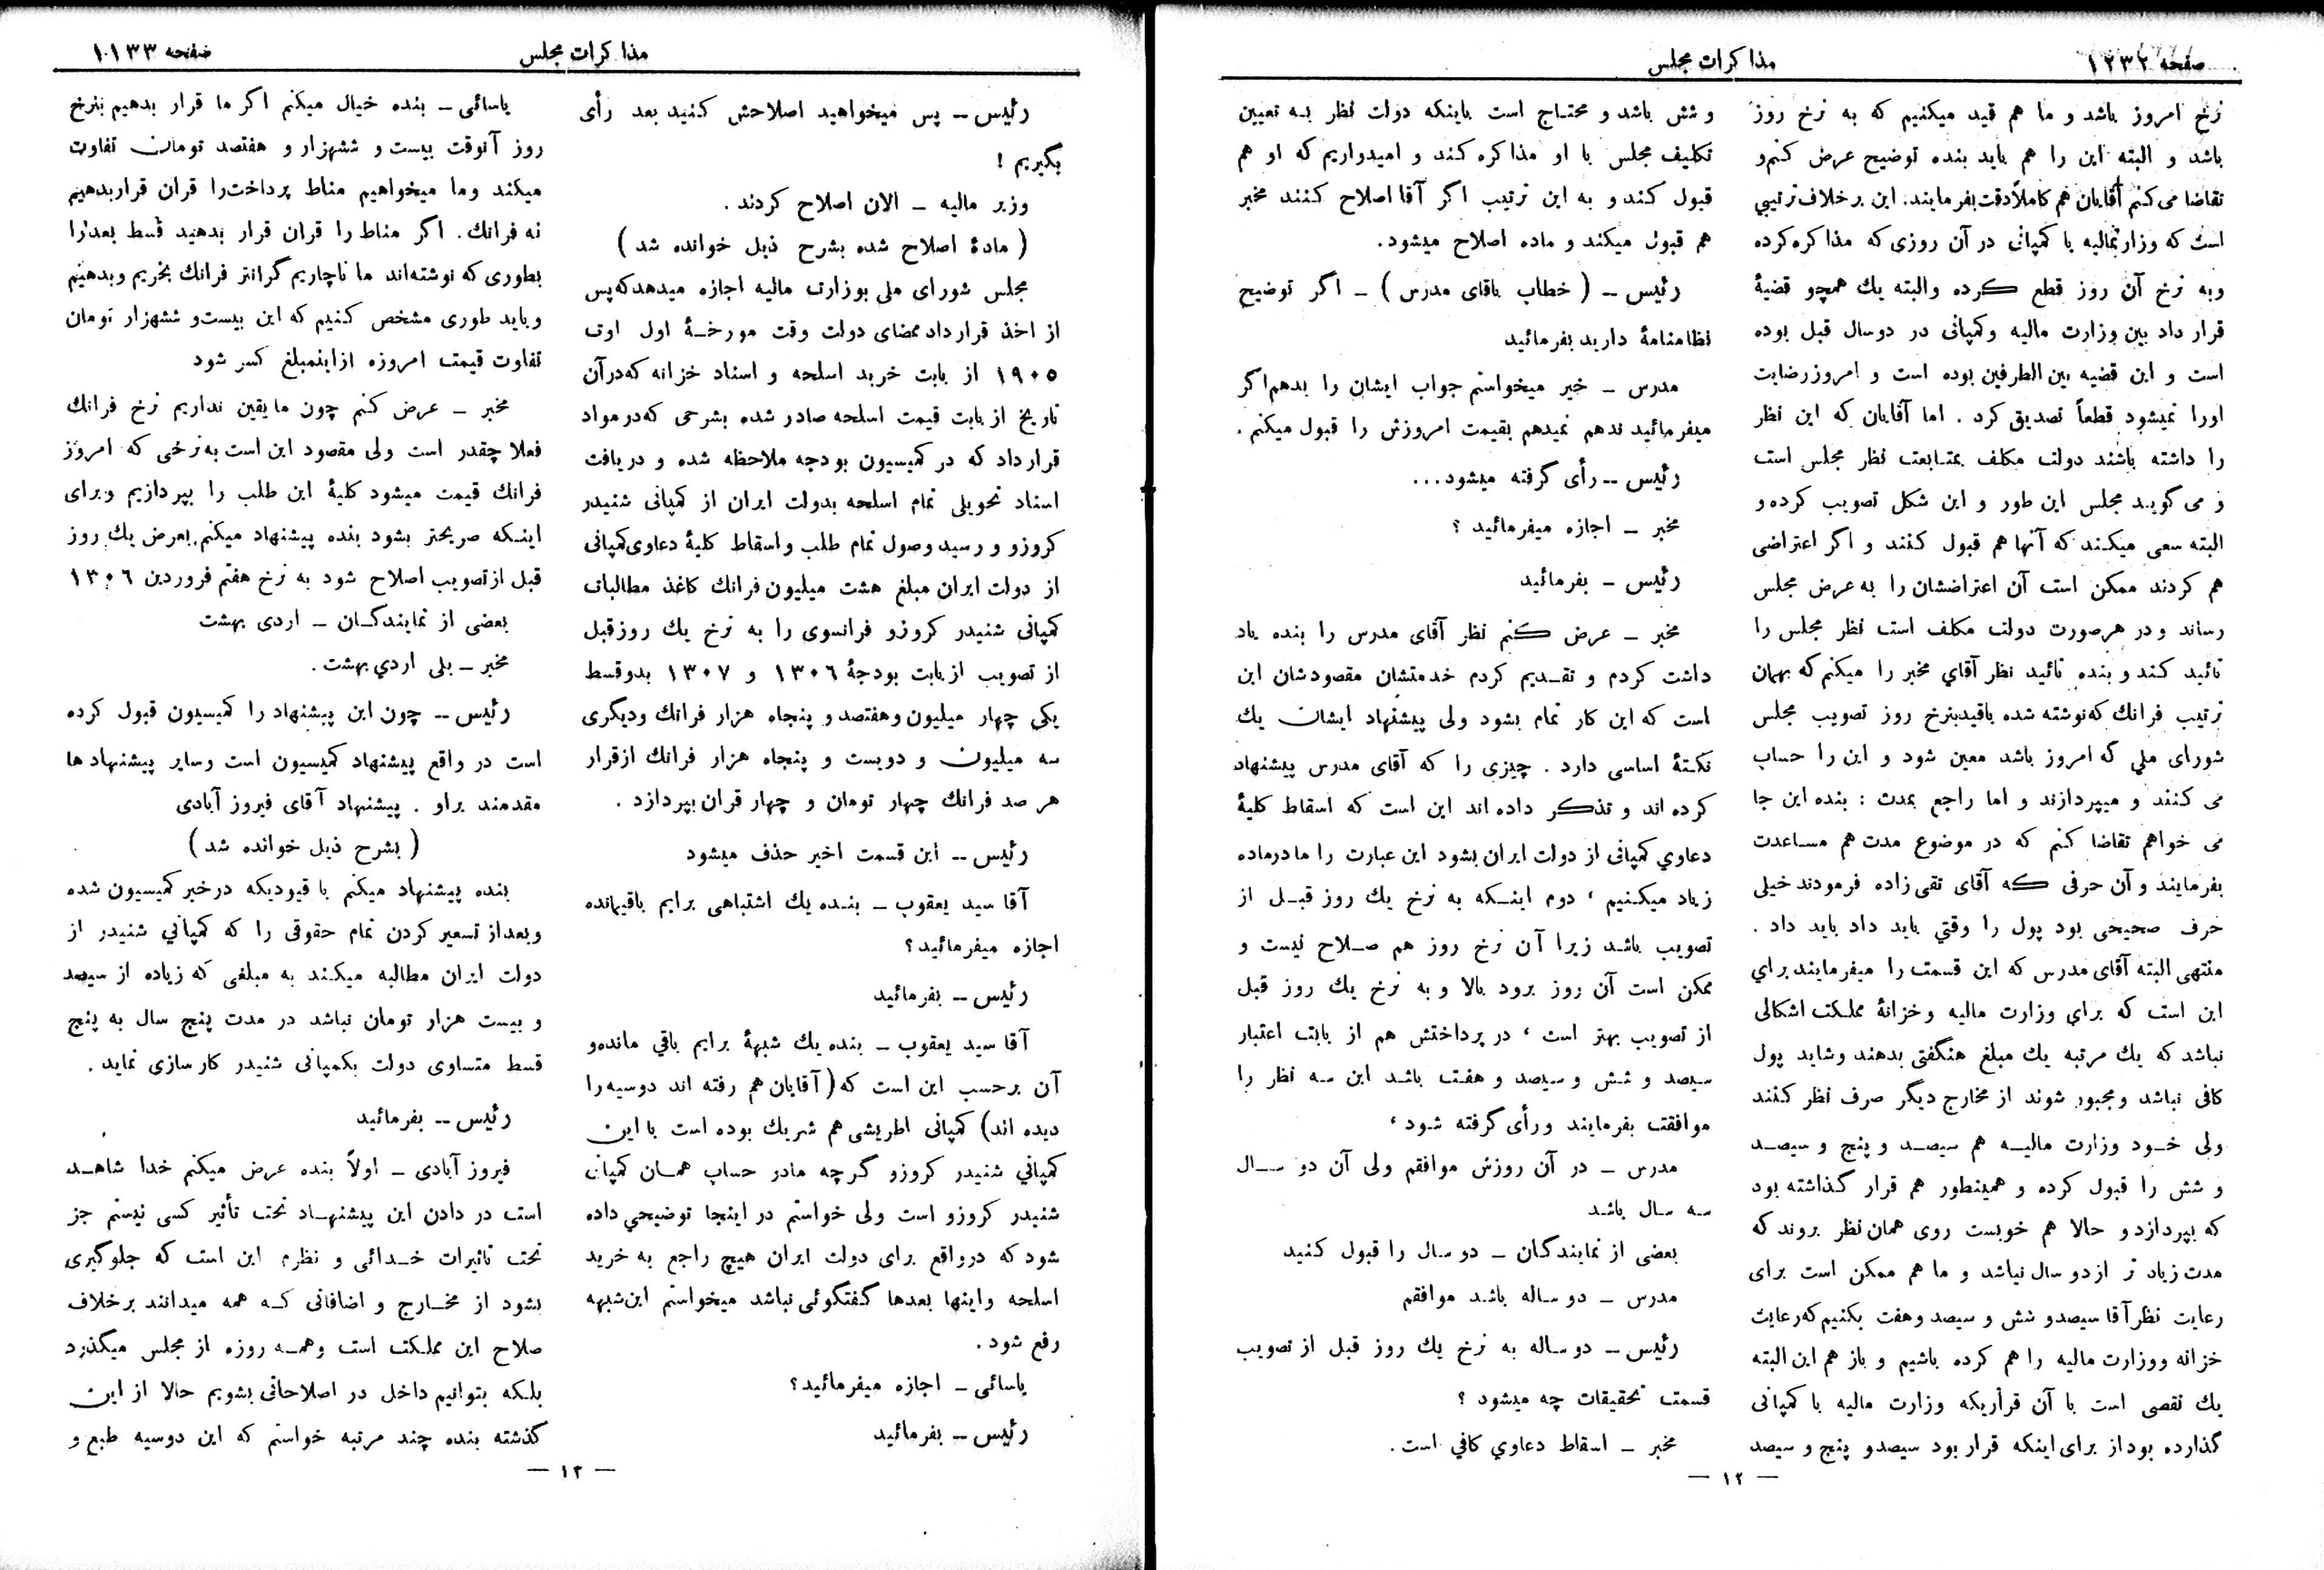 صفحه ۱۲۳۲
مذاكرات مجلس
نرخ امروز باشد و ما هم قيد ميكنيم كه به نرخ روز
باشد و البته اين را هم بايد بنده توضيح عرض كنم و
تقاضا می كنم آقايان هم كاملاً دقت بفرمايند. اين برخلاف ترتيبي
است كه وزارت ماليه با كمپانی در آن روزی كه مذاكره كرده
وبه نرخ آن روز قطع كرده والبته يك همچو قضيۀ
قرار داد بين وزارت ماليه وكمپانی در دوسال قبل بوده
است و اين قضيه بين الطرفين بوده است و امروز رضايت
اورا نميشود قطعاً تصديق كرد . اما آقايان كه اين نظر
را داشته باشند دولت مكلف بمتابعت نظر مجلس است
و می گويد مجلس اين طور و اين شكل تصويب كرده و
البته سعی ميكند كه آنها هم قبول كنند و اگر اعتراضی
هم كردند ممكن است آن اعتراضشان را به عرض مجلس
رساند و در هرصورت دولت مكلف است نظر مجلس را
تائيد كند و بنده تائيد نظر آقاي مخبر را ميكنم كه بهمان
ترتيب فرانك كه نوشته شده باقيد بنرخ روز تصويب مجلس
شورای ملي كه امروز باشد معين شود و اين را حساب
می كنند و ميپردازند و اما راجع بمدت : بنده اين جا
می خواهم تقاضا كنم كه در موضوع مدت هم مساعدت
بفرمايند و آن حرفی كه آقای تقی زاده فرمودند خيلی
حرف صحيحی بود پول را وقتي بايد داد بايد داد .
منتهی البته آقای مدرس كه اين قسمت را ميفرمايند براي
اين است كه براي وزارت ماليه وخزانۀ مملكت اشكالی
نباشد كه يك مرتبه يك مبلغ هنگفتی بدهند وشايد پول
كافی نباشد ومجبور شوند از مخارج ديگر صرف نظر كنند
ولی خود وزارت ماليه هم سيصد و پنج و سيصد
و شش را قبول كرده و همينطور هم قرار گذاشته بود
كه بپردازد و حالا هم خوبست روی همان نظر بروند كه
مدت زياد تر از دو سال نباشد و ما هم ممكن است برای
رعايت نظر آقا سيصدو شش و سيصد وهفت بكنيم كه رعايت
خزانه ووزارت ماليه را هم كرده باشيم و باز هم اين البته
يك نقصی است با آن قراريكه وزارت ماليه با كمپانی
گذارده بود از برای اينكه قرار بود سيصدو پنج و سيصد
و شش باشد و محتاج است باينكه دولت نظر به تعيين
تكليف مجلس با او مذاكره كند و اميدواريم كه او هم
قبول كند و به اين ترتيب اگر آقا اصلاح كنند مخبر
هم قبول ميكند و ماده اصلاح ميشود.
رئيس -- ( خطاب باقای مدرس ) - اگر توضيح
نظامنامۀ داريد بفرمائيد
مدرس - خير ميخواستم جواب ايشان را بدهم اگر
ميفرمائيد ندهم نميدهم بقيمت امروزش را قبول ميكنم .
رئيس -- رأی گرفته ميشود...
مخبر - اجازه ميفرمائيد ؟
رئيس - بفرمائيد
مخبر - عرض كنم نظر آقای مدرس را بنده ياد
داشت كردم و تقديم كردم خدمتشان مقصودشان اين
است كه اين كار تمام بشود ولی پيشنهاد ايشان يك
نكتۀ اساسی دارد . چيزی را كه آقای مدرس پيشنهاد
كرده اند و تذكر داده اند اين است كه اسقاط كليۀ
دعاوي كمپانی از دولت ايران بشود اين عبارت را ما درماده
زياد ميكنيم ، دوم اينكه به نرخ يك روز قبل از
تصويب باشد زيرا آن نرخ روز هم صلاح نيست و
ممكن است آن روز برود بالا و به نرخ يك روز قبل
از تصويب بهتر است ، در پرداختش هم از بابت اعتبار
سيصد و شش و سيصد و هفت باشد اين سه نظر را
موافقت بفرمايند ورأی گرفته شود ،
مدرس - در آن روزش موافقم ولی آن دو سال
سه سال باشد
بعضی از نمايندگان - دو سال را قبول كنيد
مدرس - دو ساله باشد موافقم
رئيس - دو ساله به نرخ يك روز قبل از تصويب
قسمت تحقيقات چه ميشود ؟
مخبر - اسقاط دعاوي كافي است .
— ۱۲ —
مذاكرات مجلس
صفحه ۱۱۳۳
رئيس -- پس ميخواهيد اصلاحش كنيد بعد رأی
بگيريم !
وزير ماليه - الان اصلاح كردند .
( مادۀ اصلاح شده بشرح ذيل خوانده شد )
مجلس شورای ملی بوزارت ماليه اجازه ميدهد كه پس
از اخذ قرار داد ممضای دولت وقت مورخۀ اول اوت
۱۹۰۵ از بابت خريد اسلحه و اسناد خزانه كه درآن
تاريخ از بابت قيمت اسلحه صادر شده بشرحی كه در مواد
قرار داد كه در كميسيون بودجه ملاحظه شده و دريافت
اسناد تحويلی تمام اسلحه بدولت ايران از كمپانی شنيدر
كروزو و رسيد وصول تمام طلب و اسقاط كليۀ دعاوی كمپانی
از دولت ايران مبلغ هشت ميليون فرانك كاغذ مطالبات
كمپانی شنيدر كروزو فرانسوی را به نرخ يك روز قبل
از تصويب از بابت بودجۀ ۱۳۰۶ و ۱۳۰۷ بدوقسط
يكی چهار ميليون و هفتصد و پنجاه هزار فرانك وديگری
سه ميليون و دويست و پنجاه هزار فرانك از قرار
هر صد فرانك چهار تومان و چهار قران بپردازد .
رئيس -- اين قسمت اخير حذف ميشود
آقا سيد يعقوب - بنده يك اشتباهی برايم باقيمانده
اجازه ميفرمائيد؟
رئيس -- بفرمائيد
آقا سيد يعقوب - بنده يك شبهۀ برايم باقي مانده و
آن برحسب اين است كه ( آقايان هم رفته اند دوسيه را
ديده اند) كمپانی اطريشی هم شريك بوده است با اين
كمپاني شنيدر كروزو گرچه مادر حساب همان كمپانی
شنيدر كروزو است ولی خواستم در اينجا توضيحي داده
شود كه درواقع برای دولت ايران هيچ راجع به خريد
اسلحه واينها بعدها گفتگوئی نباشد ميخواستم اين شبهه
رفع شود .
ياسائی - اجازه ميفرمائيد؟
رئيس -- بفرمائيد
ياسائی - بنده خيال ميكنم اگر ما قرار بدهيم بنرخ
روز آنوقت بيست و ششهزار و هفتصد تومان تفاوت
ميكند وما ميخواهيم مناط پرداخت را قران قرار بدهيم
نه فرانك . اگر مناط را قران قرار بدهيد قسط بعد را
بطوری كه نوشته اند ما ناچاريم گرانتر فرانك بخريم وبدهيم
وبايد طوری مشخص كنيم كه اين بيست و ششهزار تومان
تفاوت قيمت امروزه ازاينمبلغ كسر شود
مخبر - عرض كنم چون ما يقين نداريم نرخ فرانك
فعلا چقدر است ولی مقصود اين است به نرخی كه امروز
فرانك قيمت ميشود كليۀ اين طلب را بپردازيم وبرای
اينكه صريحتر بشود بنده پيشنهاد ميكنم بعرض يك روز
قبل از تصويب اصلاح شود به نرخ هفتم فروردين ۱۳۰۶
بعضی از نمايندگان - اردی بهشت
مخبر - بلی اردي بهشت .
رئيس -- چون اين پيشنهاد را كميسيون قبول كرده
است در واقع پيشنهاد كميسيون است وساير پيشنهاد ها
مقدمند براو . پيشنهاد آقای فيروز آبادی
( بشرح ذيل خوانده شد )
بنده پيشنهاد ميكنم با قيوديكه درخبر كميسيون شده
وبعد از تسعير كردن تمام حقوقی را كه كمپاني شنيدر از
دولت ايران مطالبه ميكند به مبلغی كه زياده از سيصد
و بيست هزار تومان نباشد در مدت پنج سال به پنج
قسط متساوی دولت بكمپانی شنيدر كارسازی نمايد .
رئيس -- بفرمائيد
فيروز آبادی - اولاً بنده عرض ميكنم خدا شاهد
است در دادن اين پيشنهاد تحت تأثير كسی نيستم جز
تحت تاثيرات خدائی و نظرم اين است كه جلوگيری
بشود از مخارج و اضافاتی كه همه ميدانند برخلاف
صلاح اين مملكت است وهمه روزه از مجلس ميگذرد
بلكه بتوانيم داخل در اصلاحاتی بشويم حالا از اين
گذشته بنده چند مرتبه خواستم كه اين دوسيه طبع و
— ۱۳ —